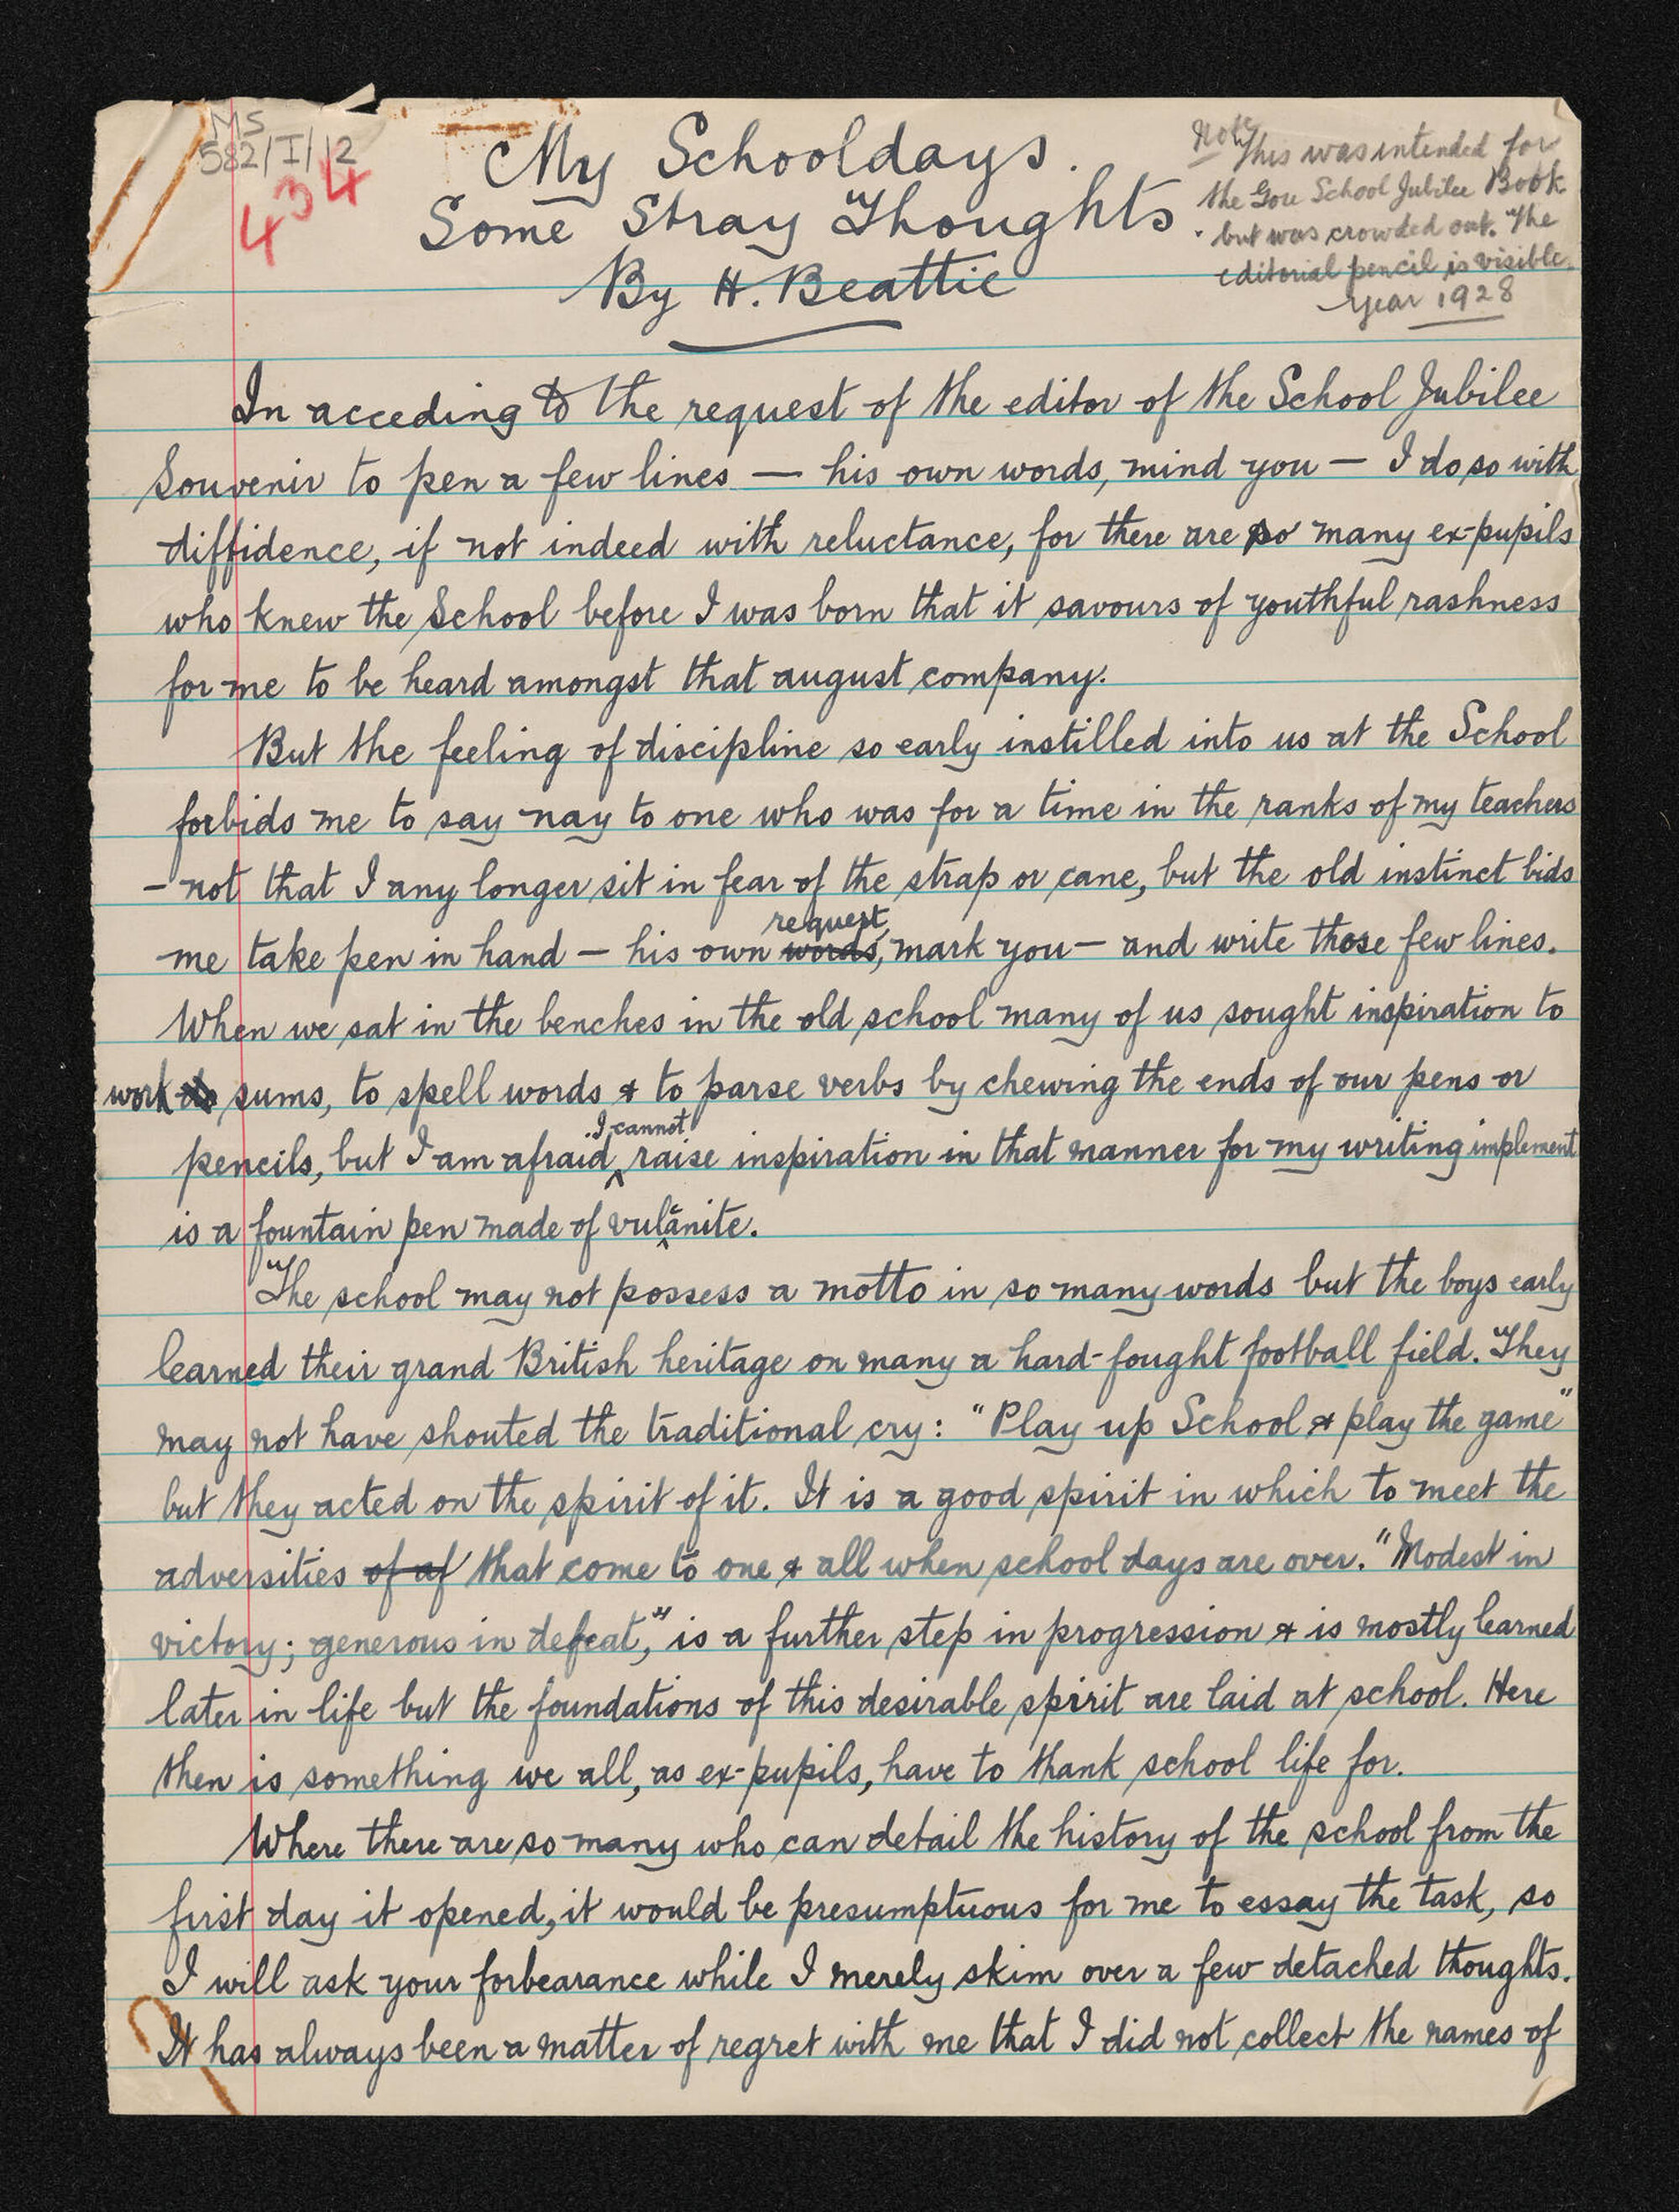 MS
582/I/12
434
My Schooldays.
Some Stray Thoughts.
By H. Beattie
Note This was intended for
the Gore School Jubilee Book
but was crowded out. The
editorial pencil is visible.
Year 1928
In acceding to the request of the editor of the School Jubilee
Souvenir to pen a few lines — his own words, mind you — I do so with
diffidence, if not indeed with reluctance, for there are so many ex-pupils
who knew the School before I was born that it savours of youthful rashness
for me to be heard amongst that august company.
But the feeling of discipline so early instilled into us at the School
forbids me to say nay to one who was for a time in the ranks of my teachers
– not that I any longer sit in fear of the strap or cane, but the old instinct bids
request
me take pen in hand – his own words, mark you – and write those few lines.
When we sat in the benches in the old school many of us sought inspiration to
work do sums, to spell words & to parse verbs by chewing the ends of our pens or
I cannot
pencils, but I am afraid raise inspiration in that manner for my writing implement
is a fountain pen made of vulanite.
The school may not possess a motto in so many words but the boys early
learned their grand British heritage on many a hard-fought football field. They
may not have shouted the traditional cry: "Play up School & play the game"
but they acted on the spirit of it. It is a good spirit in which to meet the
adversities of af that come to one & all when school days are over. "Modest in
victory; generous in defeat," is a further step in progression & is mostly learned
later in life but the foundations of this desirable spirit are laid at school. Here
then is something we all, as ex-pupils, have to thank school life for.
Where there are so many who can detail the history of the school from the
first day it opened, it would be presumptuous for me to essay the task, so
I will ask your forbearance while I merely skim over a few detached thoughts.
It has always been a matter of regret with me that I did not collect the names of